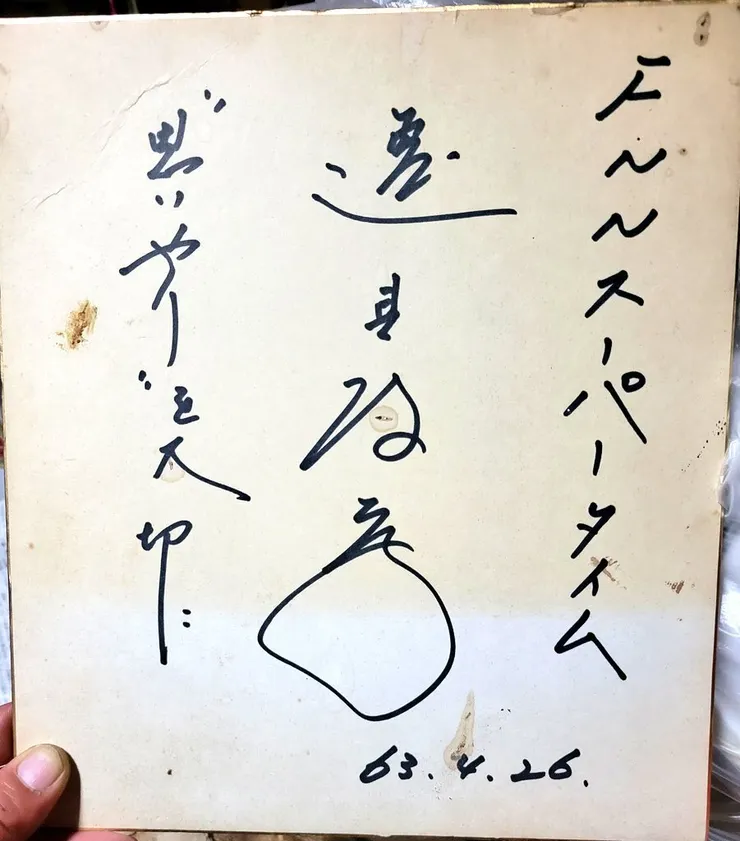 FNNスーパータイム
逸見政孝
"思いやり"を大切に
63.4.26.